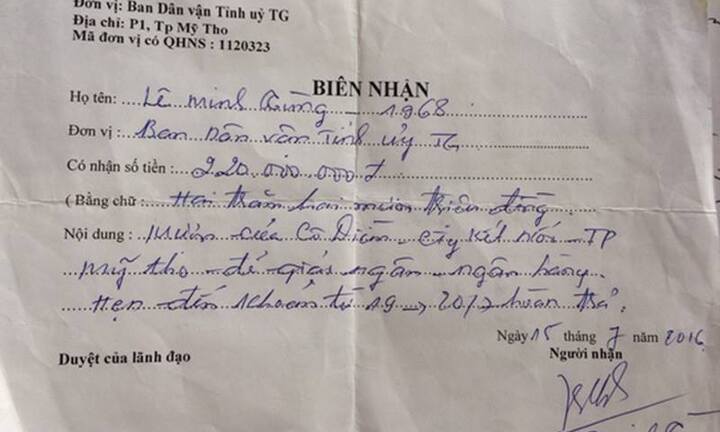 Đơn vị: Ban Dân vận Tỉnh uỷ TG
Địa chỉ: P1, Tp Mỹ Tho
Mã đơn vị có QHNS : 1120323
BIÊN NHẬN
Họ tên: Lê Minh Hùng - 1968
Đơn vị : Ban Dân vận Tỉnh ủy TG
Có nhận số tiền : 220.000.000đ
( Bằng chữ : Hai trăm hai mươi triệu đồng
Nội dung : Mượn của Cô Diễm - Cty Kết Nối - TP
Mỹ Tho - để giải ngân - ngân hàng.
Hẹn đến khoản từ 19 → 20/7 hoàn trả.
Ngày 15 tháng 7 năm 2016
Duyệt của lãnh đạo
Người nhận